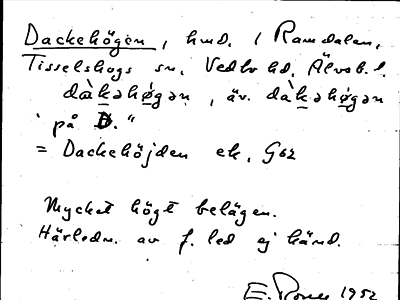 Dackehögen, hmd. i Ramdalen,
Tisselskogs sn. Vedbo hd. Älvsb. l.
dàkəhøgən, äv. dàkəhøgən
"på D."
= Dackehöjden ek. G62
Mycket högt belägen.
Härledn. av f. led ej känd.
E. 1952